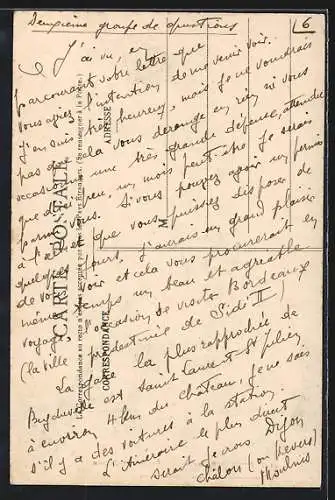 Deuxième groupe de questions
6
J'ai vu, en
parcourant votre lettre que
vous aviez l'intention de me venir voir.
J'en suis très heureux, mais je ne voudrais
pas que cela vous dérange en rien ni vous
occasionne une très grande défense, attendu
que si peu, un mois peut-être je serais
parmi vous. Si vous pouvez avoir un permis
à l'œil et que vous puissiez disposer de
quelques jours, j'aurais un grand plaisir
de vous voir et cela vous procurerait en
même temps un beau et agréable
voyage, occasion de visiter Bordeaux
(la ville prédestinée de Sidi II)
La gare la plus rapprochée de
est Saint Laurent St Julien
à environ 4 km du château, je ne sais
s'il y a des voitures à la station.
L'itinéraire le plus direct
serait je crois Dijon
Châlon (ou Nevers)
Moulins
CARTE POSTALE
La Correspondance au recto n'est pas acceptée par tous les pays étrangers. (Se renseigner à la Poste.)
CORRESPONDANCE
ADRESSE
M